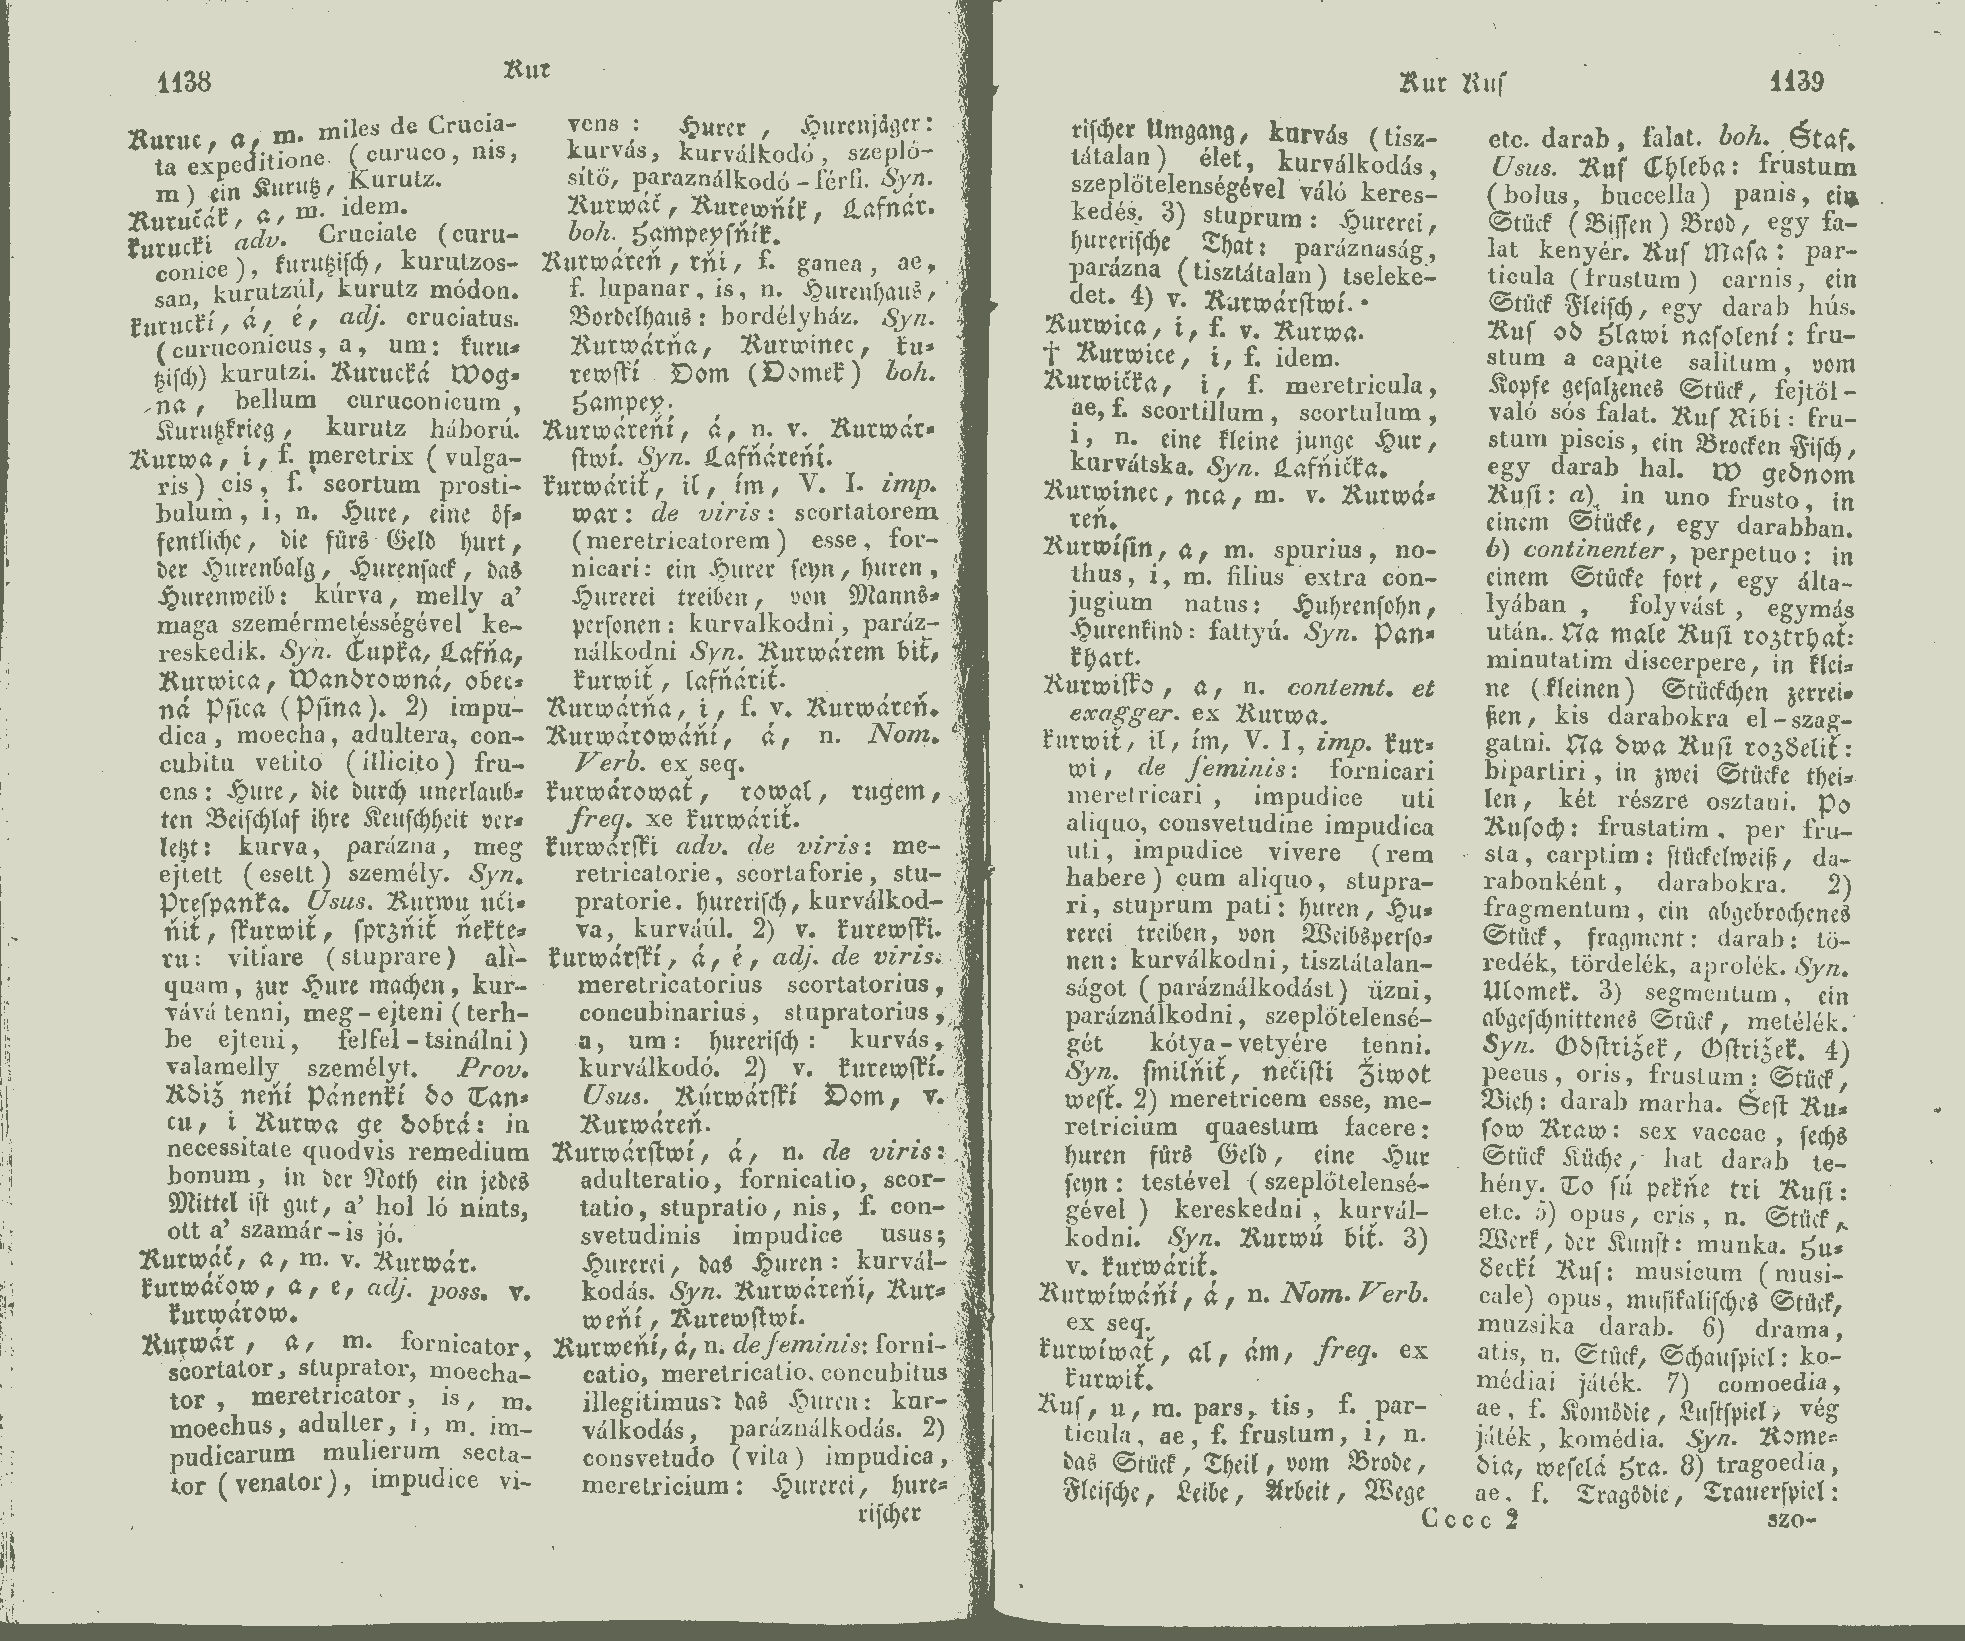 1138
Kur
Kuruc, a, m. miles de Crucia-
ta expeditione (curuco, nis,
m) ein Kurutz, Kurutz.
Kuručák, a, m. idem.
kurucki adv. Cruciate (curu-
conice), kurutzisch, kurutzos-
san, kurutzúl, kurutz módon.
kuruckí, á, é, adj. cruciatus.
(curuconicus, a, um: kuru-
tzisch) kurutzi. Kurucká Wog-
na, bellum curuconicum,
Kurutzkrieg, kurutz háború.
Kurwa, i, f. meretrix (vulga-
ris) cis, f. scortum prosti-
bulum, i, n. Hure, eine öf-
fentliche, die fürs Geld hurt,
der Hurenbalg, Hurensack, das
Hurenweib: kúrva, melly a'
maga szemérmetésségével ke-
reskedik. Syn. Cupka, Lafňa,
Kurwica, Wandrowná, obec-
ná Psica (Psina). 2) impu-
dica, moecha, adultera, con-
cubitu vetito (illicito) fru-
ens: Hure, die durch unerlaub-
ten Beischlaf ihre Keuschheit ver-
letzt: kurva, parázna, meg
ejtett (esett) személy. Syn.
Prespanka. Usus. Kurwu uči-
ňiť, skurwiť, sprzňiť ňekte-
ru: vitiare (stuprare) ali-
quam, zur Hure machen, kur-
vává tenni, meg-ejteni (terh-
be ejteni, felfel-tsinálni)
valamelly személyt. Prov.
Kdiž neňí Pánenkí do Tan-
cu, i Kurwa ge dobrá: in
necessitate quodvis remedium
bonum, in der Noth ein jedes
Mittel ist gut, a' hol ló nints,
ott a' szamár-is jó.
Kurwáč, a, m. v. Kurwár.
kurwáčow, a, e, adj. poss. v.
kurwárow.
Kurwár, a, m. fornicator,
scortator, stuprator, moecha-
tor, meretricator, is, m.
moechus, adulter, i, m. im-
pudicarum mulierum secta-
tor (venator), impudice vi-
vens: Hurer, Hurenjäger:
kurvás, kurválkodó, szeplő-
sítő, paraználkodó-férfi. Syn.
Kurwáč, Kurewňík, Lafnár.
boh. Hampeysňík.
Kurwáreň, rňi, f. ganea, ae,
f. lupanar, is, n. Hurenhaus,
Bordelhaus: bordélyház. Syn.
Kurwárňa, Kurwinec, ku-
rewskí Dom (Domek) boh.
Hampey.
Kurwáreňí, á, n. v. Kurwár-
stwí. Syn. Lafňáreňí.
kurwáriť, il, ím, V. I. imp.
war: de viris: scortatorem
(meretricatorem) esse, for-
nicari: ein Hurer seyn, huren,
Hurerei treiben, von Manns-
personen: kurvalkodni, paráz-
nálkodni Syn. Kurwárem biť,
kurwiť, lafňáriť.
Kurwárňa, i, f. v. Kurwáreň.
Kurwárowáňí, á, n. Nom.
Verb. ex seq.
kurwárowať, rowal, rugem,
freq. xe kurwáriť.
kurwárski adv. de viris: me-
retricatorie, scortaforie, stu-
pratorie. hurerisch, kurválkod-
va, kurváúl. 2) v. kurewski.
kurwárskí, á, é, adj. de viris.
meretricatorius scortatorius,
concubinarius, stupratorius,
a, um: hurerisch: kurvás,
kurválkodó. 2) v. kurewskí.
Usus. Kúrwárskí Dom, v.
Kurwáreň.
Kurwárstwí, á, n. de viris:
adulteratio, fornicatio, scor-
tatio, stupratio, nis, f. con-
svetudinis impudice usus;
Hurerei, das Huren: kurvál-
kodás. Syn. Kurwáreňi, Kur-
weňí, Kurewstwí.
Kurweňí, á, n. de feminis: forni-
catio, meretricatio, concubitus
illegitimus: das Huren: kur-
válkodás, paráználkodás. 2)
consvetudo (vita) impudica,
meretricium: Hurerei, hure-
rischer
Kur Kus
1139
rischer Umgang, kurvás (tisz-
tátalan) élet, kurválkodás,
szeplőtelenségével váló keres-
kedés. 3) stuprum: Hurerei,
hurerische That: paráznaság,
parázna (tisztátalan) tseleke-
det. 4) v. Kurwárstwí.
Kurwica, i, f. v. Kurwa.
† Kurwice, i, f. idem.
Kurwička, i, f. meretricula,
ae, f. scortillum, scortulum,
i, n. eine kleine junge Hur,
kurvátska. Syn. Lafňička.
Kurwinec, nca, m. v. Kurwá-
reň.
Kurwisin, a, m. spurius, no-
thus, i, m. filius extra con-
jugium natus: Huhrensohn,
Hurenkind: fattyú. Syn. Pan-
khart.
Kurwisko, a, n. contemt. et
exagger. ex Kurwa.
kurwiť, il, ím, V. I, imp. kur-
wi, de feminis: fornicari
meretricari, impudice uti
aliquo, consvetudine impudica
uti, impudice vivere (rem
habere) cum aliquo, stupra-
ri, stuprum pati: huren, Hu-
rerei treiben, von Weibsperso-
nen: kurválkodni, tisztátalan-
ságot (paráználkodást) üzni,
paráználkodni, szeplőtelensé-
gét kótya-vetyére tenni.
Syn. smilňiť, nečisti Život
wesť. 2) meretricem esse, me-
retricium quaestum facere:
huren fürs Geld, eine Hur
seyn: testével (szeplőtelensé-
gével) kereskedni, kurvál-
kodni. Syn. Kurwú biť. 3)
v. kurwáriť.
Kurwíwáňí, á, n. Nom. Verb.
ex seq.
kurwíwať, al, ám, freq. ex
kurwiť.
Kus, u, m. pars, tis, f. par-
ticula, ae, f. frustum, i, n.
das Stück, Theil, vom Brode,
Fleische, Leibe, Arbeit, Wege
etc. darab, falat. boh. Štaf.
Usus. Kus Chleba: frustum
(bolus, buccella) panis, ein
Stück (Bissen) Brod, egy fa-
lat kenyér. Kus Masa: par-
ticula (frustum) carnis, ein
Stück Fleisch, egy darab hús.
Kus od Hlawi nasolení: fru-
stum a capite salitum, vom
Kopfe gesalzenes Stück, fejtöl-
való sós falat. Kus Ribi: fru-
stum piscis, ein Brocken Fisch,
egy darab hal. W gednom
Kusi: a) in uno frusto, in
einem Stücke, egy darabban.
b) continenter, perpetuo: in
einem Stücke fort, egy álta-
lyában, folyvást, egymás
után. Na male Kusi roztrhať:
minutatim discerpere, in klei-
ne (kleinen) Stückchen zerrei-
ßen, kis darabokra el-szag-
gatni. Na dwa Kusi rozdeliť:
bipartiri, in zwei Stücke thei-
len, két részre osztani. Po
Kusoch: frustatim, per fru-
sta, carptim: stückelweiß, da-
rabonként, darabokra. 2)
fragmentum, ein abgebrochenes
Stück, fragment: darab: tö-
redék, tördelék, aprolék. Syn.
Ulomek. 3) segmentum, ein
abgeschnittenes Stück, metélék.
Syn. Odstrižek, Ostrižek. 4)
pecus, oris, frustum: Stück,
Vieh: darab marha. Šest Ku-
sow Kraw: sex vaccae, sechs
Stück Kühe, hat darab te-
hény. To sú pekňe tri Kusi:
etc. 5) opus, eris, n. Stück,
Werk, der Kunst: munka. Hu-
deckí Kus: musicum (musi-
cale) opus, musikalisches Stück,
muzsika darab. 6) drama,
atis, n. Stück, Schauspiel: ko-
médiai játék. 7) comoedia,
ae, f. Komödie, Lustspiel, vég
játék, komédia. Syn. Kome-
dia, weselá Hra. 8) tragoedia,
ae. f. Tragödie, Trauerspiel:
Cccc 2
szo-